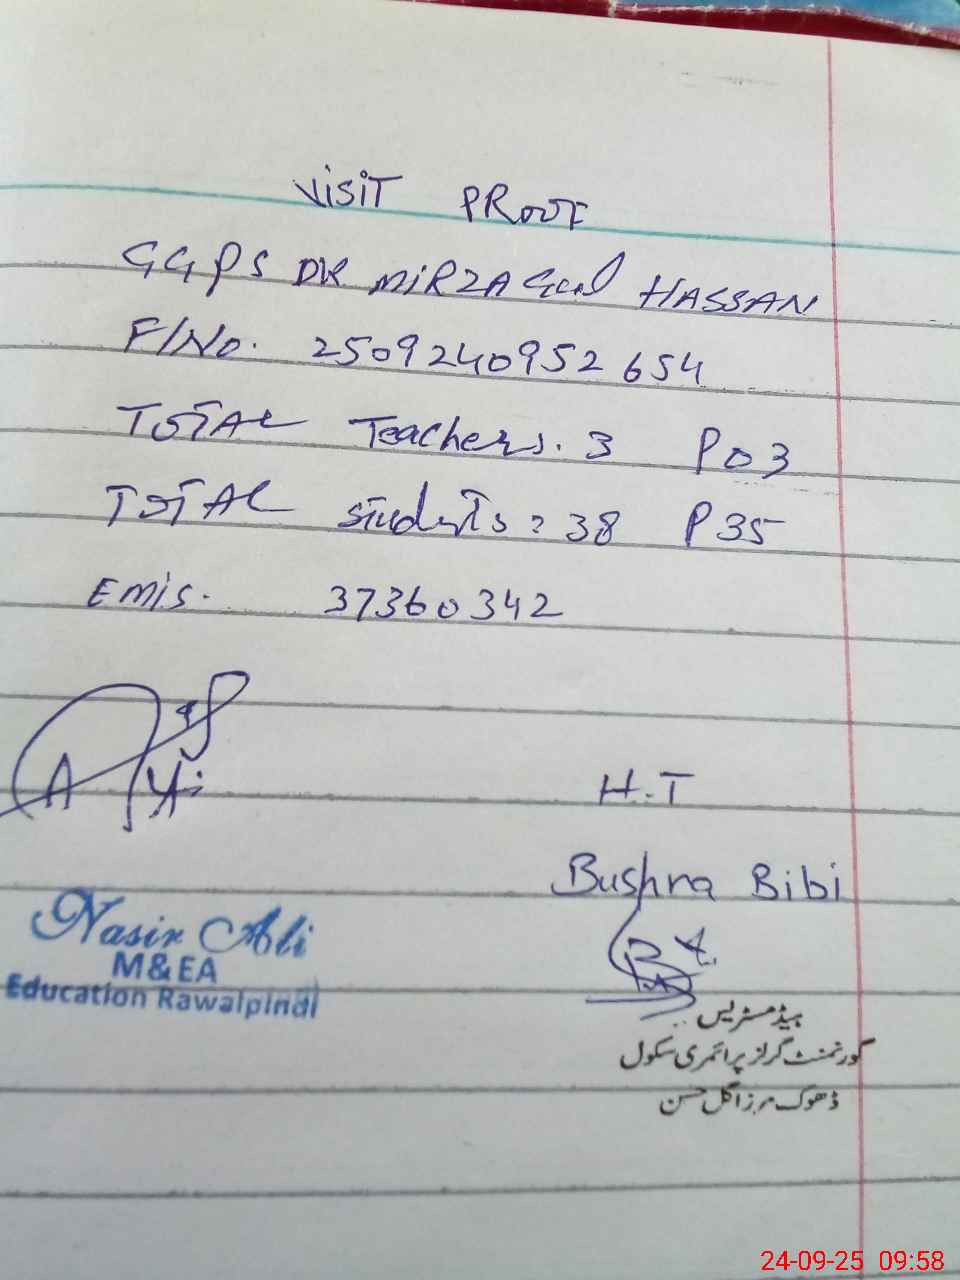 VISIT PROOF
GGPS DK MIRZA Gul HASSAN
F/No. 2509240952654
TOTAL Teachers. 3 P 03
TOTAL Students = 38 P 35
Emis. 37360342
H.T
Bushra Bibi
Nasir Ali
M&EA
Education Rawalpindi
ہیڈ مسٹریس
گورنمنٹ گرلز پرائمری سکول
ڈھوک مرزا گل حسن
24-09-25 09:58